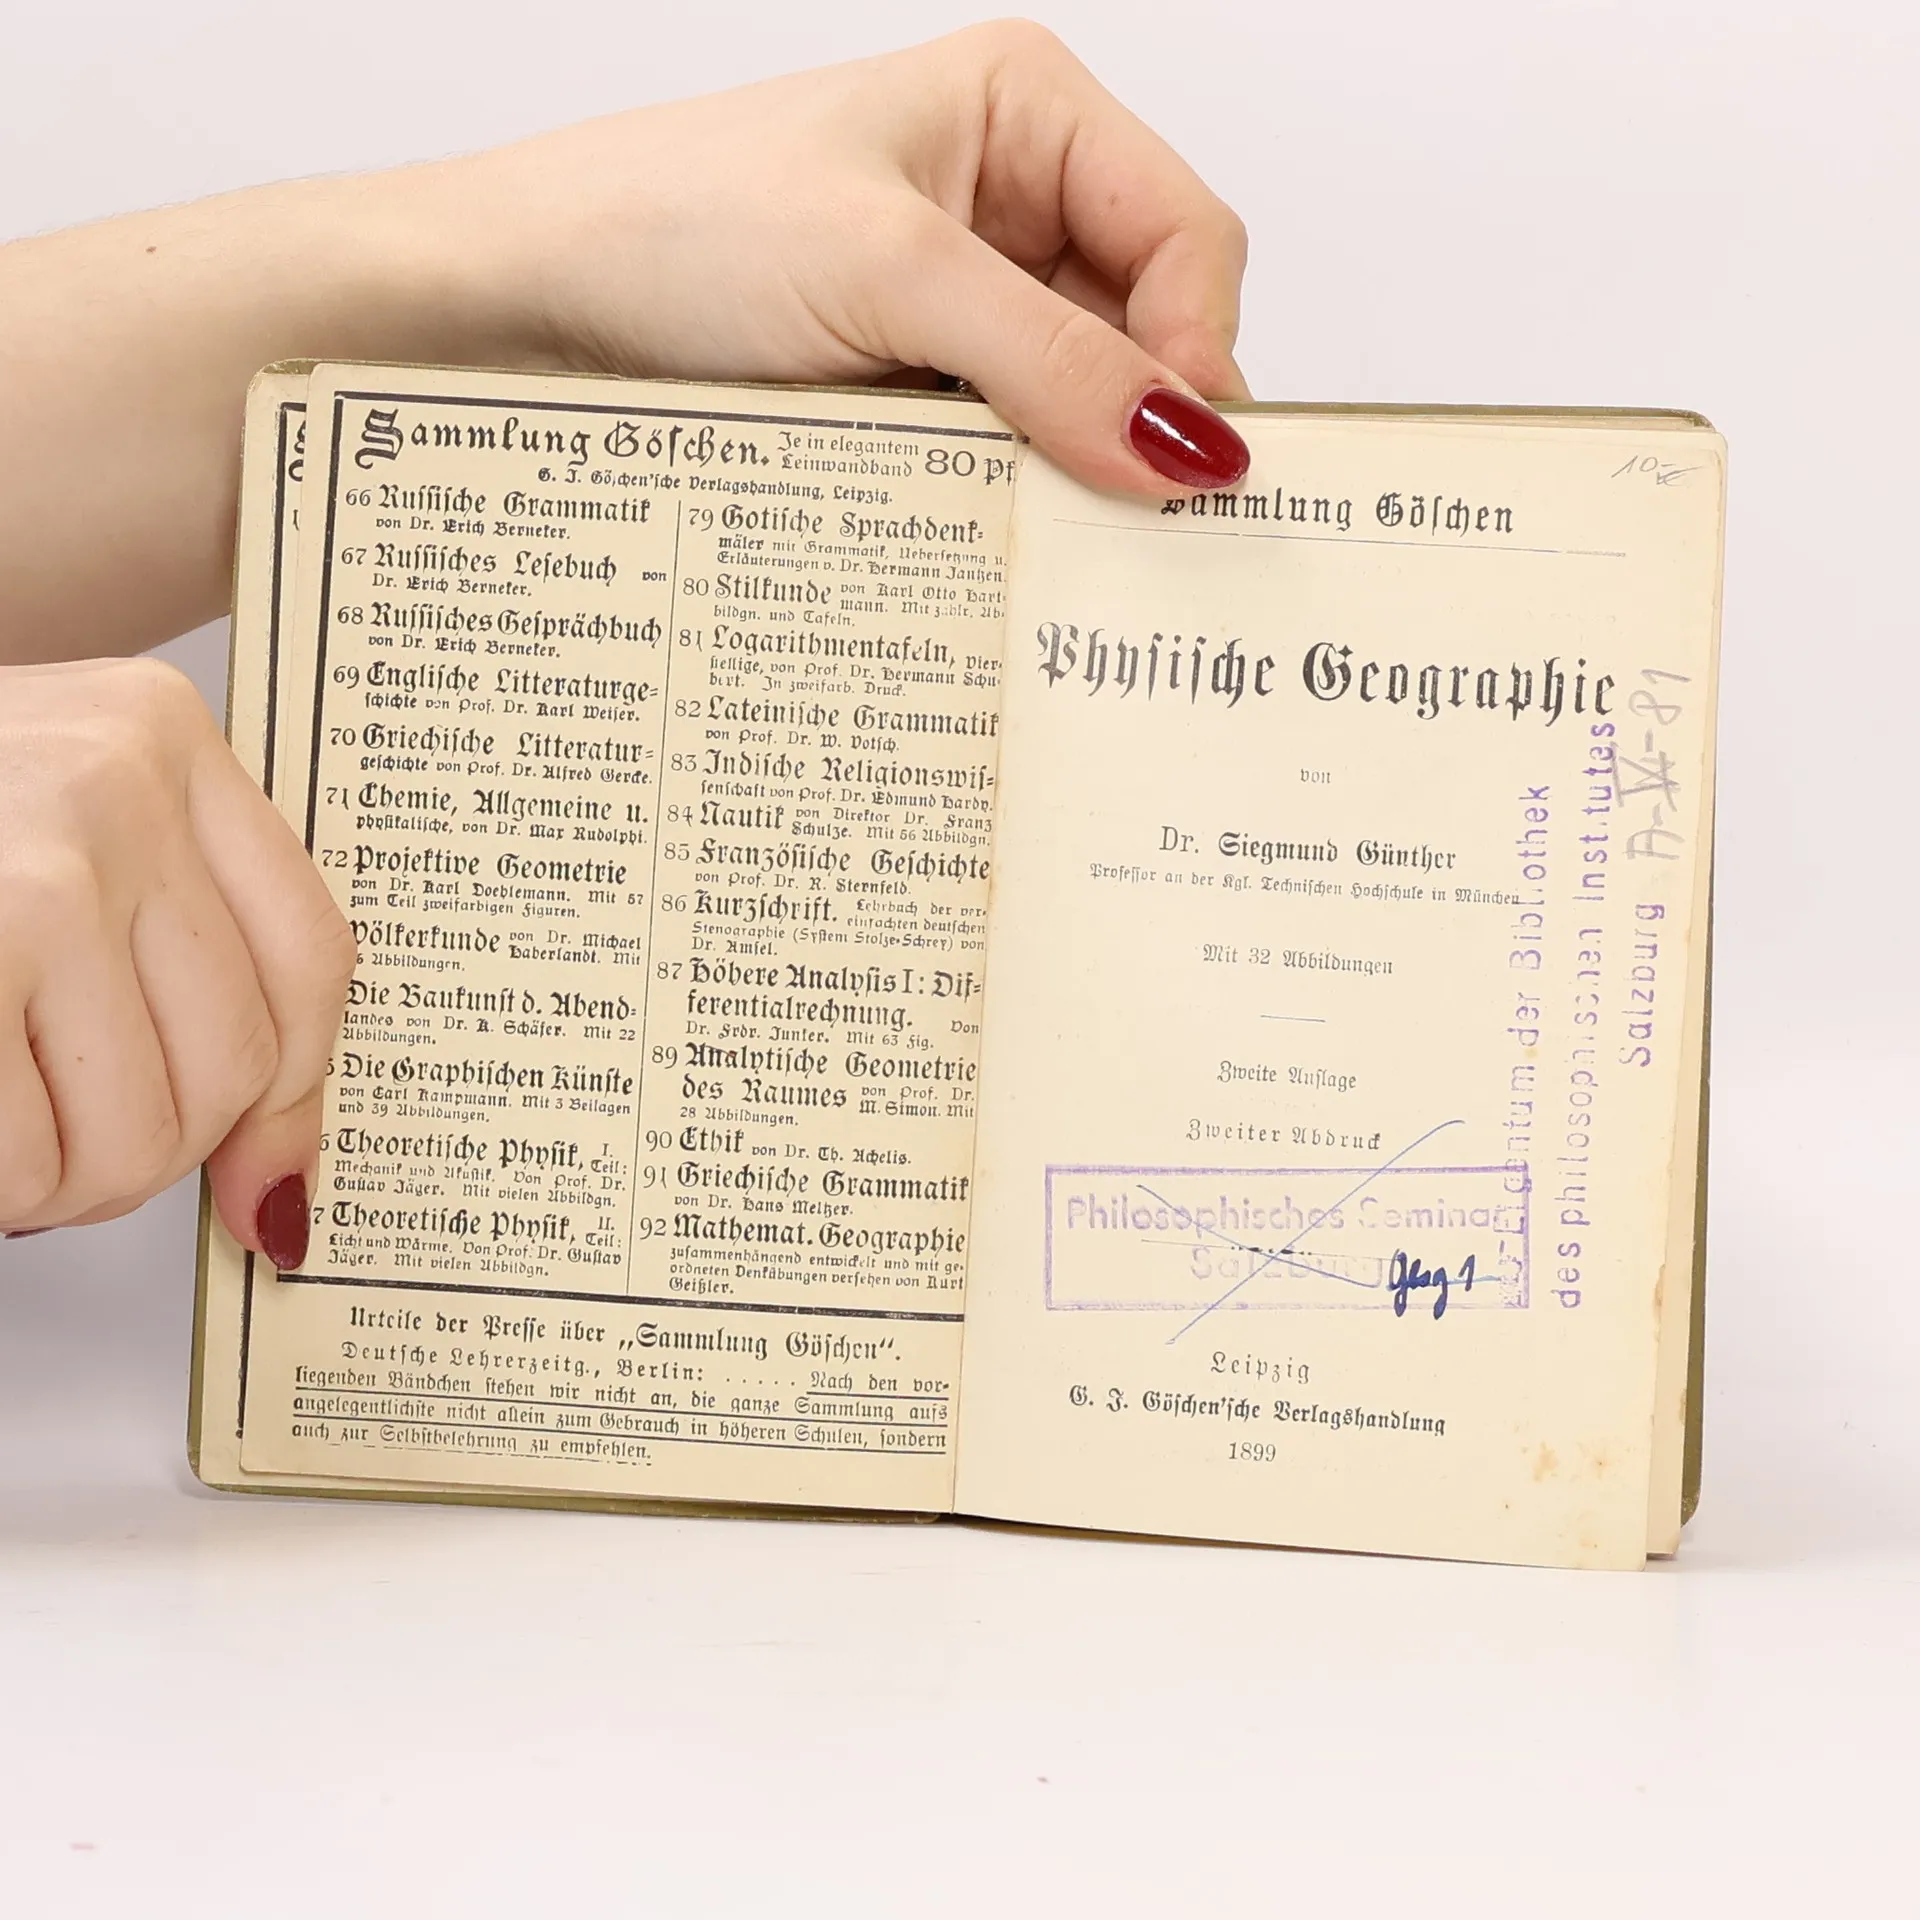 Sammlung Göschen. Je in elegantem Leinwandband 80 Pf
G. J. Göschen'sche Verlagshandlung, Leipzig.
66 Russische Grammatik
von Dr. Erich Berneker.
67 Russisches Lesebuch von
Dr. Erich Berneker.
68 Russisches Gesprächbuch
von Dr. Erich Berneker.
69 Englische Litteraturge-
schichte von Prof. Dr. Karl Weiser.
70 Griechische Litteratur-
geschichte von Prof. Dr. Alfred Gercke.
71 Chemie, Allgemeine u.
physikalische, von Dr. Max Rudolphi.
72 Projektive Geometrie
von Dr. Karl Doehlemann. Mit 57
zum Teil zweifarbigen Figuren.
Völkerkunde von Dr. Michael
Haberlandt. Mit
6 Abbildungen.
Die Baukunst d. Abend-
landes von Dr. K. Schäfer. Mit 22
Abbildungen.
5 Die Graphischen Künste
von Carl Kampmann. Mit 3 Beilagen
und 39 Abbildungen.
6 Theoretische Physik, I. Teil:
Mechanik und Akustik. Von Prof. Dr.
Gustav Jäger. Mit vielen Abbildgn.
7 Theoretische Physik, II. Teil:
Licht und Wärme. Von Prof. Dr. Gustav
Jäger. Mit vielen Abbildgn.
79 Gotische Sprachdenk-
mäler mit Grammatik, Uebersetzung u.
Erläuterungen v. Dr. Hermann Jantzen.
80 Stilkunde von Karl Otto Hart-
mann. Mit zahlr. Ab-
bildgn. und Tafeln.
81 Logarithmentafeln, vier-
stellige, von Prof. Dr. Hermann Schu-
bert. In zweifarb. Druck.
82 Lateinische Grammatik
von Prof. Dr. W. Votsch.
83 Indische Religionswis-
senschaft von Prof. Dr. Edmund Hardy.
84 Nautik von Direktor Dr. Franz
Schulze. Mit 56 Abbildgn.
85 Französische Geschichte
von Prof. Dr. R. Sternfeld.
86 Kurzschrift. Lehrbuch der ver-
einfachten deutschen
Stenographie (System Stolze-Schrey) von
Dr. Amsel.
87 Höhere Analysis I: Dif-
ferentialrechnung. Von
Dr. Frdr. Junker. Mit 63 Fig.
89 Analytische Geometrie
des Raumes von Prof. Dr.
M. Simon. Mit
28 Abbildungen.
90 Ethik von Dr. Th. Achelis.
91 Griechische Grammatik
von Dr. Hans Meltzer.
92 Mathemat. Geographie
zusammenhängend entwickelt und mit ge-
ordneten Denkübungen versehen von Kurt
Geißler.
Urteile der Presse über „Sammlung Göschen“.
Deutsche Lehrerzeitg., Berlin: ..... Nach den vor-
liegenden Bändchen stehen wir nicht an, die ganze Sammlung aufs
angelegentlichste nicht allein zum Gebrauch in höheren Schulen, sondern
auch zur Selbstbelehrung zu empfehlen.
10-
Sammlung Göschen
Physische Geographie
von
Dr. Siegmund Günther
Professor an der Kgl. Technischen Hochschule in München
Mit 32 Abbildungen
Zweite Auflage
Zweiter Abdruck
Philosophisches Seminar
Salzburg
Geog 1
Leipzig
G. J. Göschen'sche Verlagshandlung
1899
Eigentum der Bibliothek
des philosophischen Institutes
Salzburg